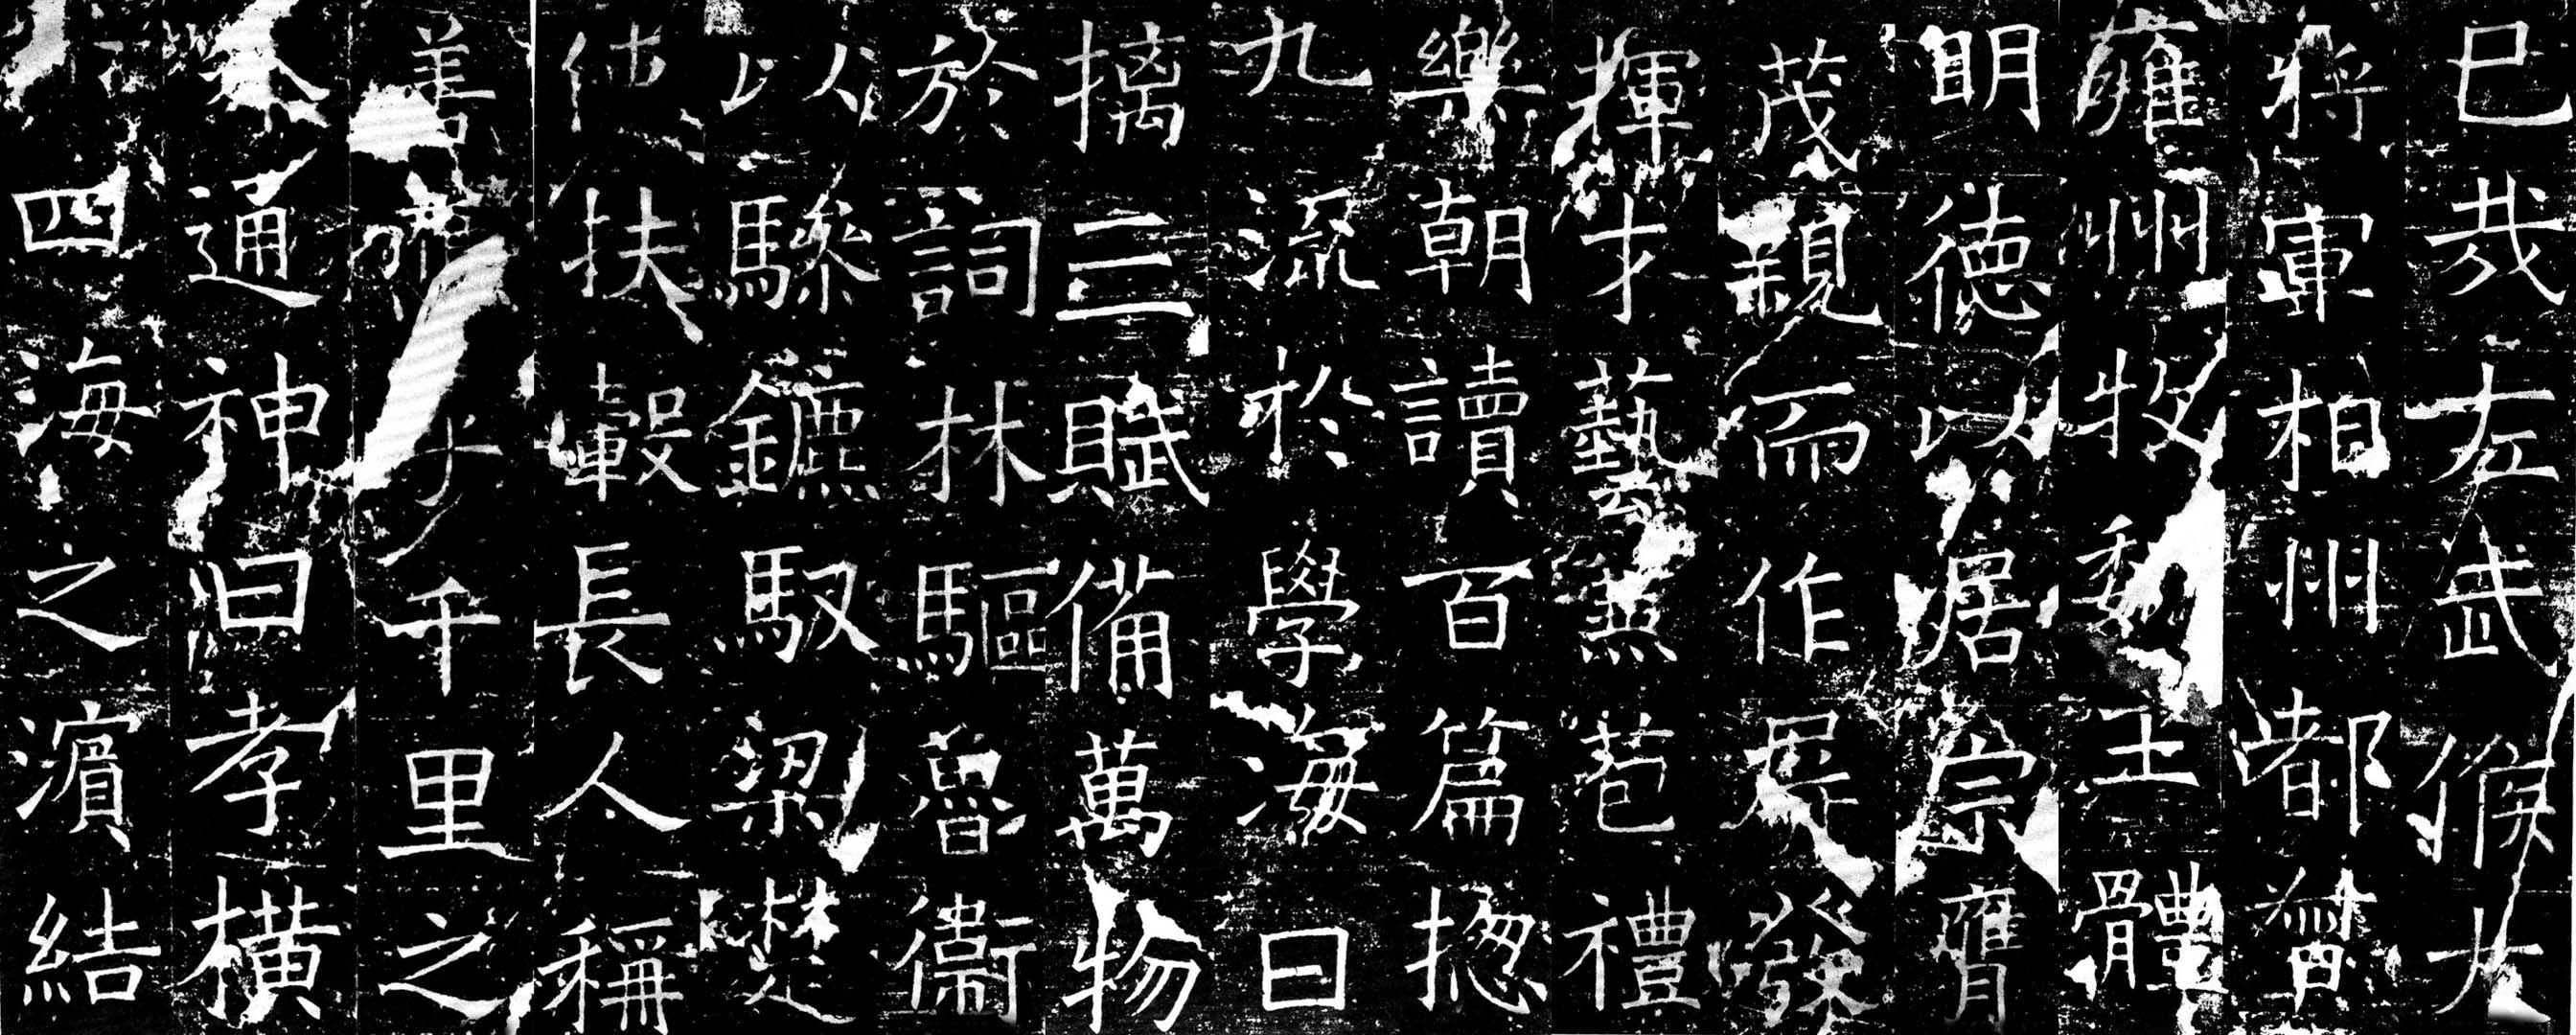 已哉左武候大
将軍相州都督
雍州牧魏王體
明德以居宗膺
茂親而作屏發
揮才藝兼苞禮
樂朝讀百篇揔
九流於學海日
摛三賦備萬物
於詞林驅魯衛
以驂鑣馭梁楚
使扶轂長人稱
善乎千里之
外通神曰孝横
四海之濱結